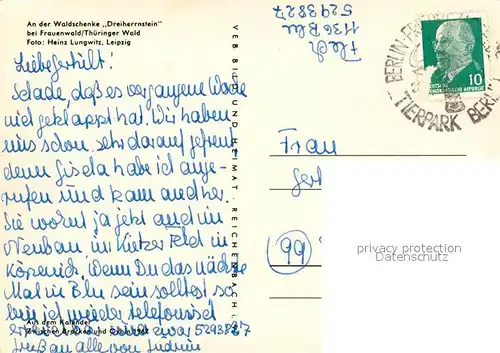 An der Waldschenke „Dreiherrnstein"
bei Frauenwald/Thüringer Wald
Foto: Heinz Lungwitz, Leipzig
Liebe Gerti!
Schade, daß es vergangene Woche
nicht geklappt hat. Wir haben
uns schon sehr darauf gefreut
denn Gisela habe ich ange-
rufen und kam auch her.
Sie wohnt ja jetzt auch im
Neubau im Kietzer Feld in
Köpenick. Wenn Du das nächste
Mal in Bln sein solltest so
bin ich wieder telefonisch
zwar 5293827
Gruß an alle von
Aus dem Kalender
Zwischen Brocken und
VEB BILD UND HEIMAT · REICHENBACH i.
1136 Bln
5293827
BERLIN-FRIE
TIERPARK BER
DEUTSCHE
DEMOKRATISCHE REPUBLIK
10
Frau
Gert
(99)
privacy protection
Datenschutz